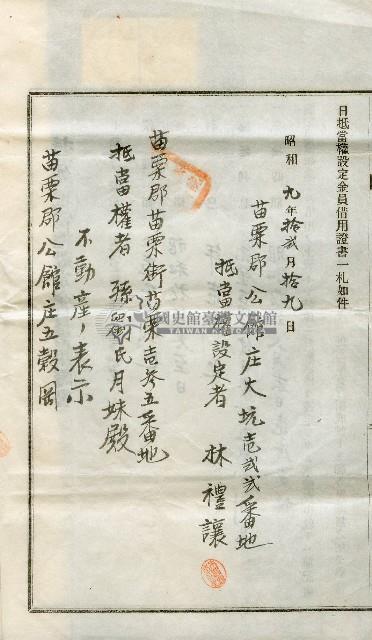 日抵當權設定金員借用證書一札如件
昭和九年拾貳月拾九日
苗栗郡公館庄大坑壱弐弐番地
抵當權設定者 林禮讓
苗栗郡苗栗街苗栗壱参五番地
抵當權者 孫劉氏月妹殿
不動產ノ表示
苗栗郡公館庄五穀岡
國史館臺灣文獻館